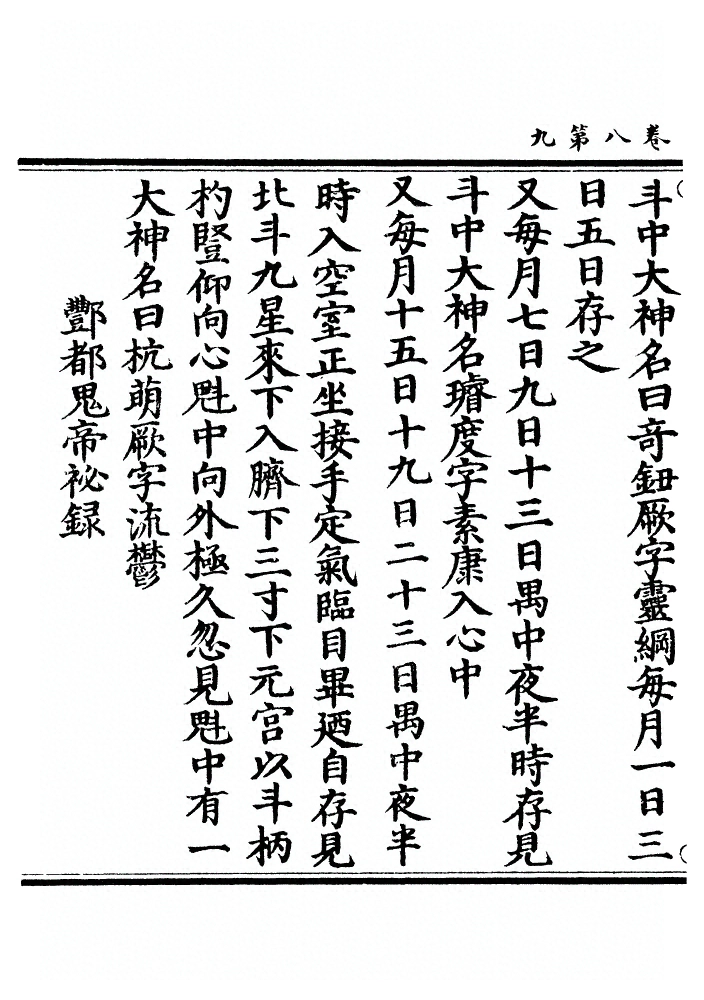 卷八第九
斗中大神名曰奇鈕厥字靈綱每月一日三
日五日存之
又每月七日九日十三日禺中夜半時存見
斗中大神名璿度字素康入心中
又每月十五日十九日二十三日禺中夜半
時入空室正坐接手定氣臨目畢廼自存見
北斗九星來下入臍下三寸下元宮以斗柄
杓豎仰向心魁中向外極久忽見魁中有一
大神名曰杭萌厥字流鬱
酆都鬼帝祕錄